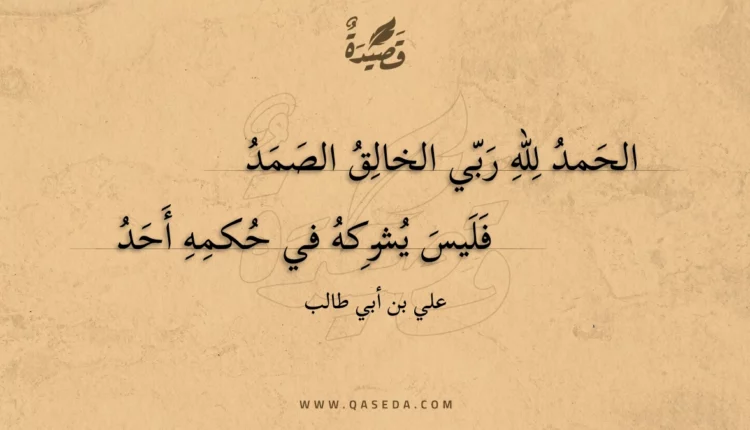 قَصِيْدَةٌ
الحَمدُ لِلَّهِ رَبّي الخالِقُ الصَمَدُ
فَلَيسَ يُشرِكهُ في حُكمِهِ أَحَدُ
علي بن أبي طالب
WWW.QASEDA.COM